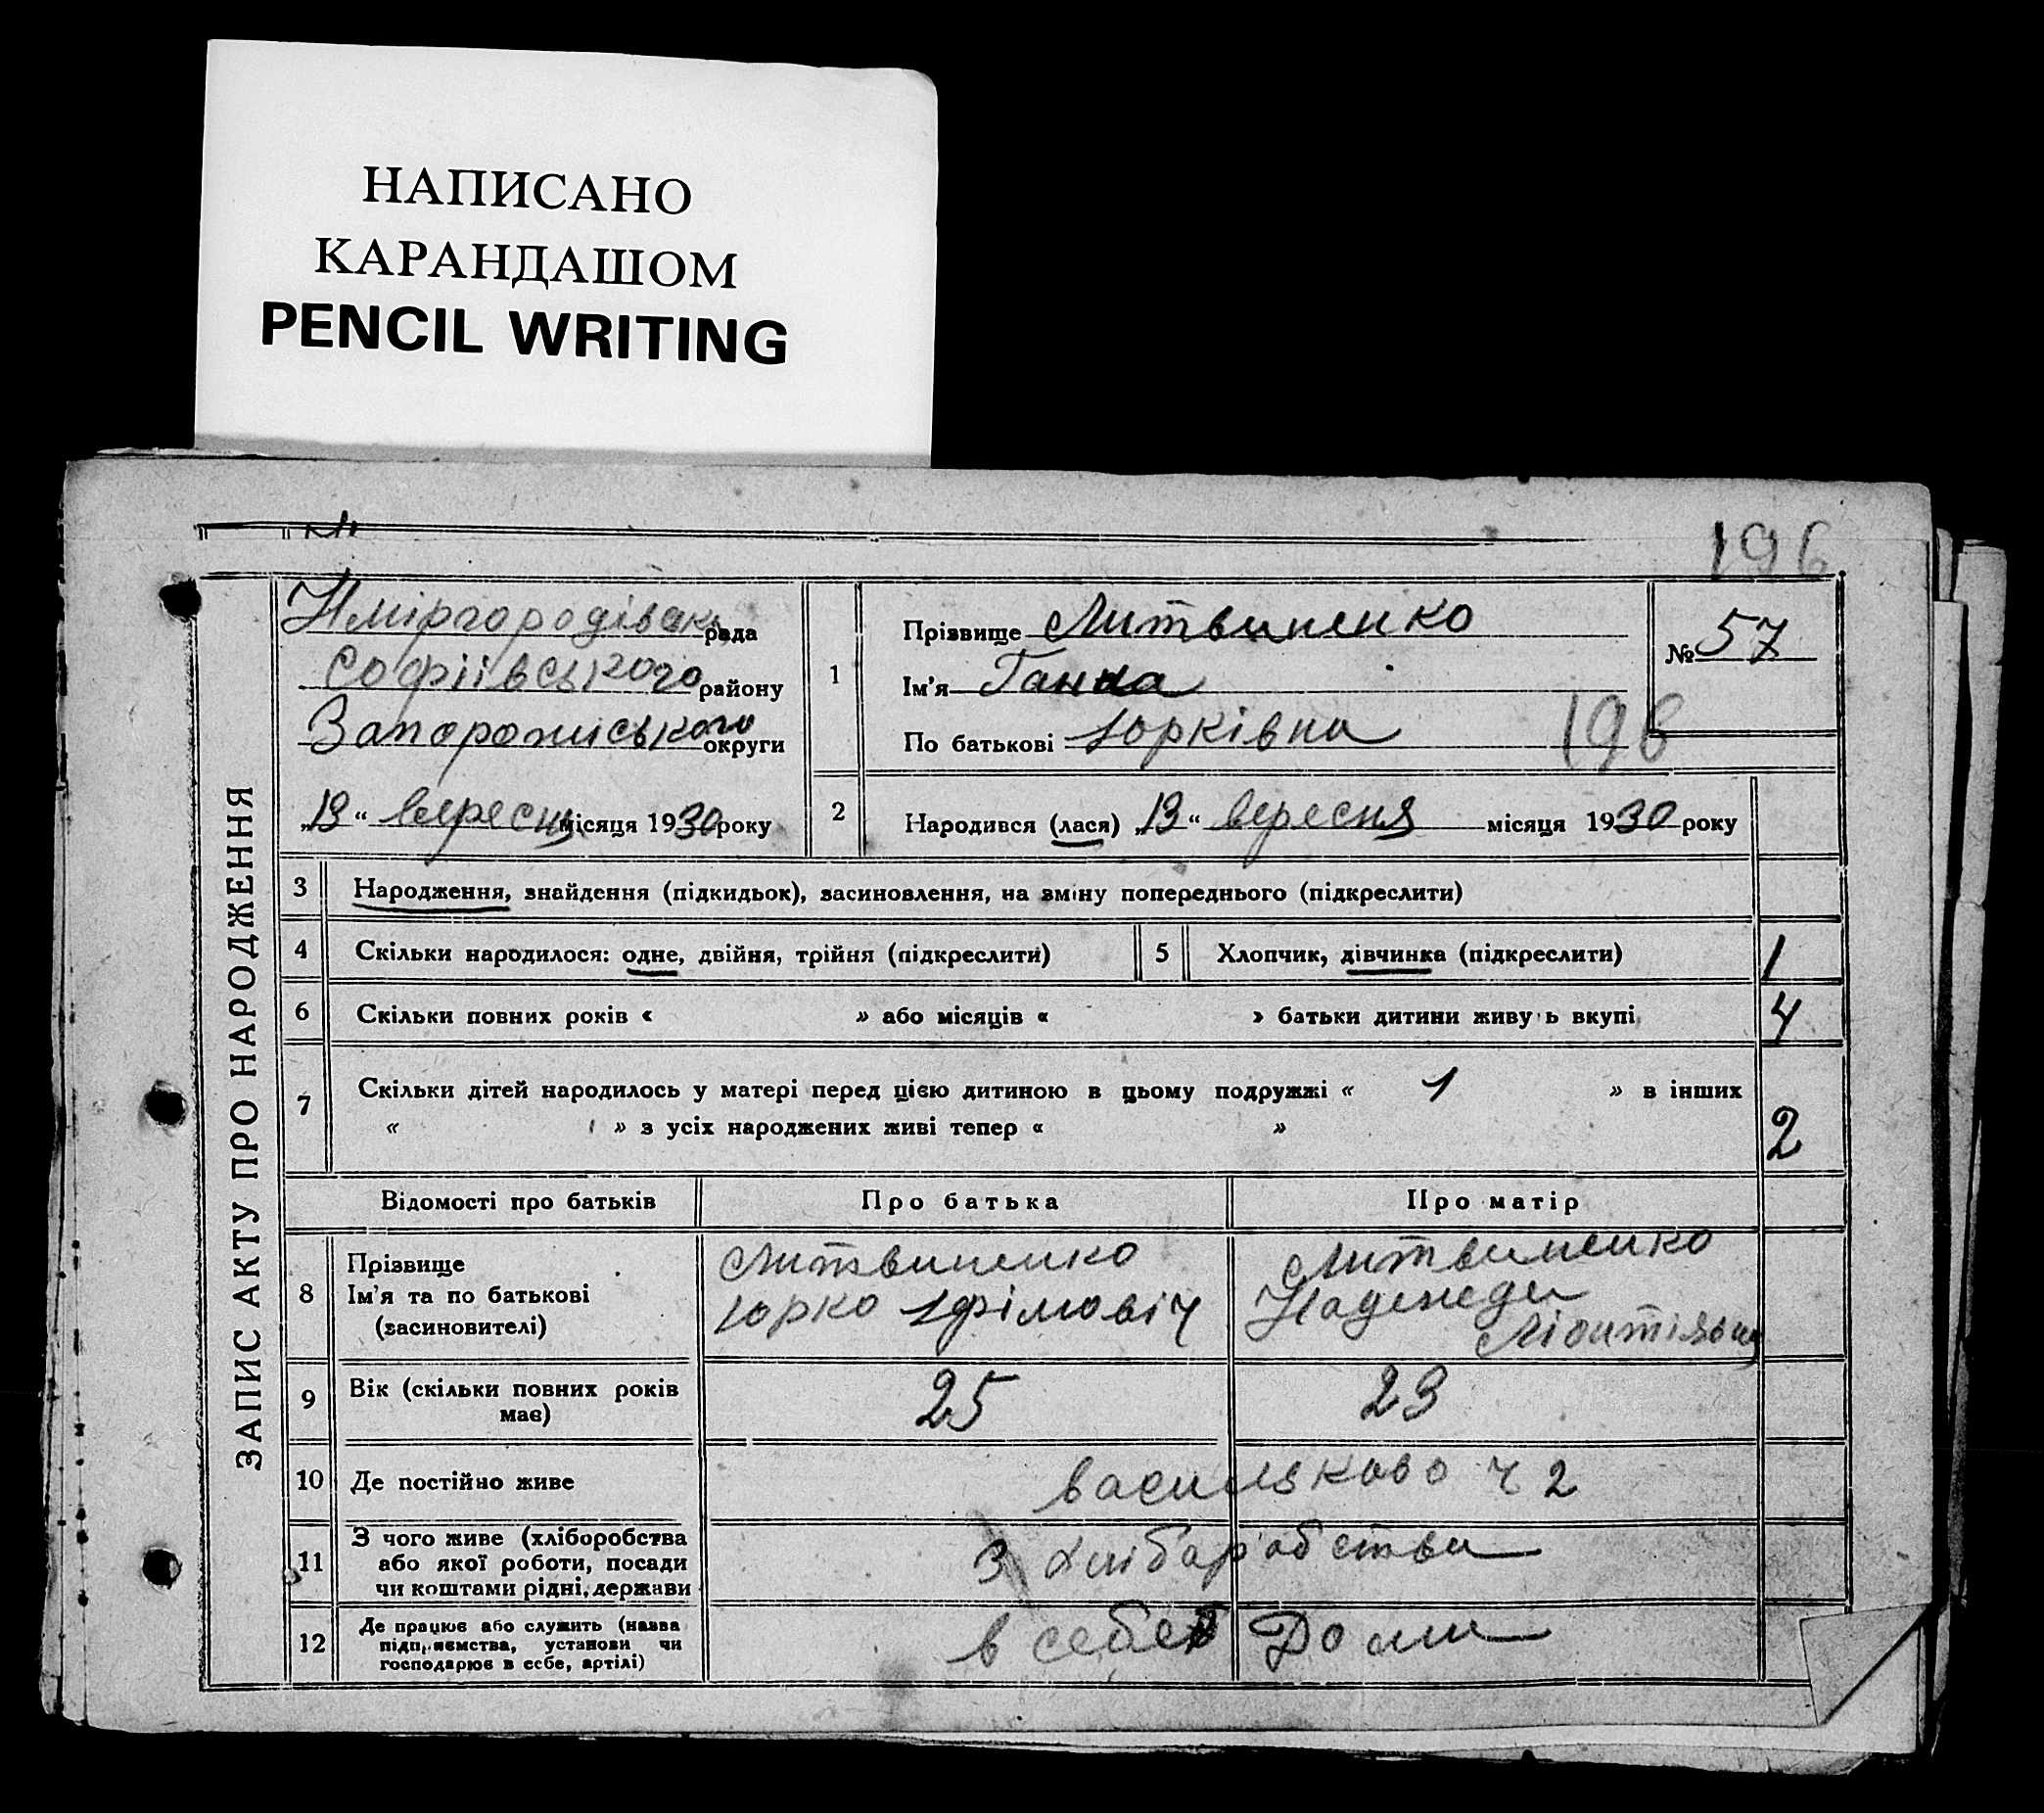 НАПИСАНО
КАРАНДАШОМ
PENCIL WRITING
196
ЗАПИС АКТУ ПРО НАРОДЖЕННЯ
рада
Софіівського району
Запорожиського округи
„13“ вересня місяця 1930 року
1
Прізвище Литвиненко
Ім'я Ганна
По батькові Юрківна
№ 57
196
2
Народився (лася) „13“ вересня місяця 1930 року
3 Народження, знайдення (підкидьок), засиновлення, на зміну попереднього (підкреслити)
4 Скільки народилося: одне, двійня, трійня (підкреслити) 5 Хлопчик, дівчинка (підкреслити) 1
6 Скільки повних років « » або місяців « » батьки дитини живуть вкупі 4
7 Скільки дітей народилось у матері перед цією дитиною в цьому подружжі « 1 » в інших
« » з усіх народжених живі тепер « » 2
Відомості про батьків Про батька Про матір
8
Прізвище
Ім'я та по батькові
(засиновителі)
Литвиненко
Юрко Юфімовіч
Литвиненко
Надежда
9 Вік (скільки повних років
має)
25 23
10 Де постійно живе васильково ч 2
11
З чого живе (хліборобства
або якої роботи, посади
чи коштами рідні, держави
З хлібаробства
12
Де працює або служить (назва
підприємства, установи чи
господарює в себе, артілі)
в себе Дома